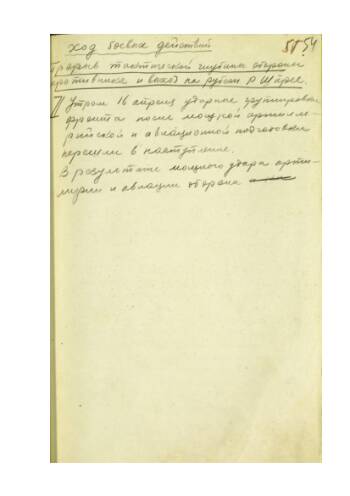 Ход боевых действий
51 54
Прорыв тактической глубины обороны
противника и выход на рубеж р. Шпрее.
1) Утром 16 апреля ударные группировки
фронта после мощной артилле-
рийской и авиационной подготовки
перешли в наступление.
В результате мощного удара арти-
лерии и авиации оборона